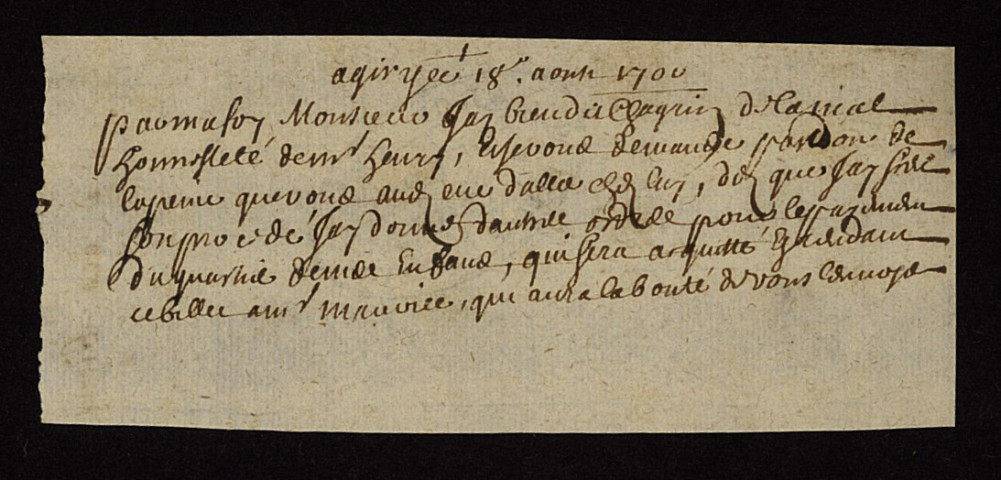 a givry ce 18e. aoust 1700
par ma foy Monsieur Jay bien du chagrin de la mal
honnesteté de mr henry, et je vous demande pardon de
la peine que vous avez eue d'aller chez luy, dez que jay sceu
son procedé jay donné d'autres ordres pour le payement
du quartier de mes enfans, qui sera acquitté en rendant
ce billet a mr, qui aura la bonté de vous l'envoyer